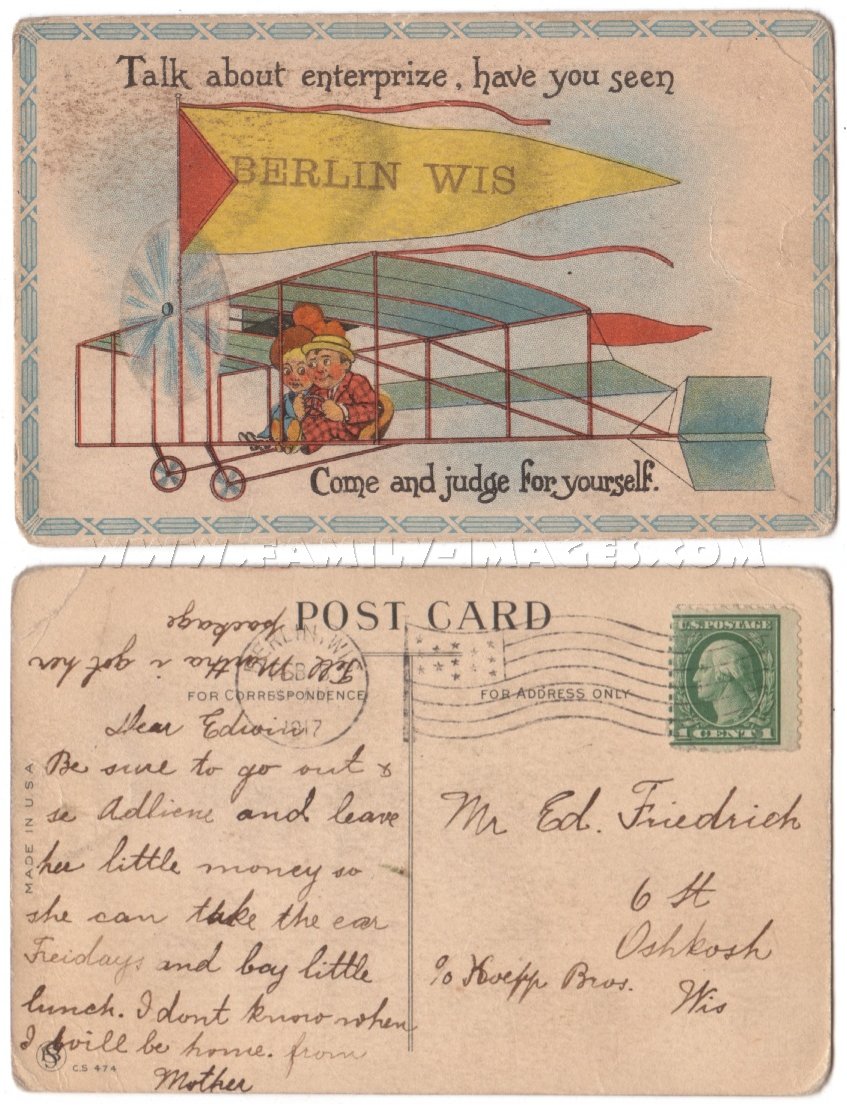 Talk about enterprize, have you seen
BERLIN WIS
Come and judge for yourself.
WWW.FAMILY-IMAGES.COM
POST CARD
Tell Martha i got her
package
FOR CORRESPONDENCE
FOR ADDRESS ONLY
BERLIN, WI
1917
U.S. POSTAGE
1 CENT 1
MADE IN U S A
Dear Edwin
Be sure to go out &
se Adliene and leave
her little money so
she can take the car
Freidays and boy little
lunch. I dont know when
I will be home. from
Mother
C.S 474
Mr Ed. Friedrich
6 St
Oshkosh
c/o Hoepp Bros.
Wis